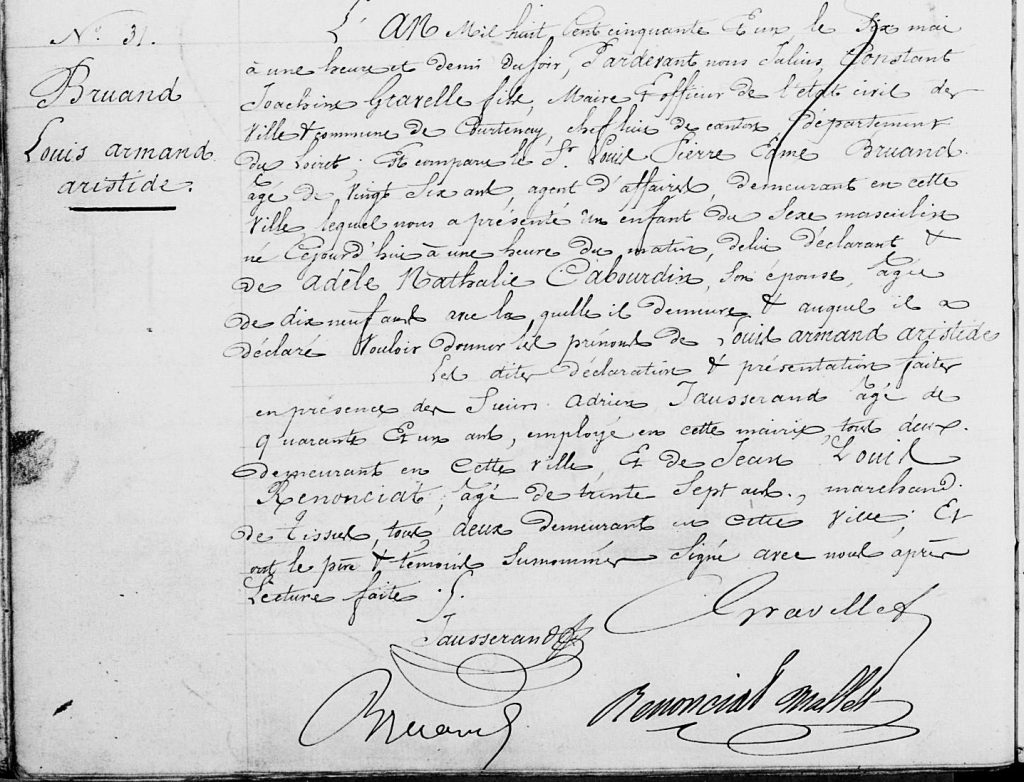 N° 31.
Bruand
Louis armand
aristide.
L'AN Mil huit Cent cinquante Et un, le Six mai
à une heure et demi du soir, Pardevant nous Julius, Constant
Joachim Gravelle fils, Maire & officier de l'état civil des
Ville & commune de Courtenay, chef lieu de canton, département
du Loiret; Est comparu le Sr. Louis Pierre Edme Bruand
âgé de Vingt Six ans, agent d'affaires, demeurant en cette
Ville, lequel nous a présenté Un enfant du Sexe masculin
né Cejourd'hui à une heure du matin, de lui déclarant &
de Adèle Nathalie Cabourdin, Son épouse, âgée
de dix neuf ans avec la quelle il demeure & auquel il a
déclaré Vouloir donner les prénoms de Louis armand aristide
Les dites déclaration & présentation faites
en présence des Sieurs adrien Jausserand âgé de
quarante Et un ans, employé en cette mairie, tous deux.
demeurant en Cette Ville, Et de Jean Louis
Renonciat, âgé de trente Sept ans., marchand.
de tissus, tous deux demeurant en Cette Ville; Et
ont le père & témoins Surnommés Signé avec nous après
Lecture faite ./.
Gravelle f
Jausserand
Bruand
Renonciat Mallet